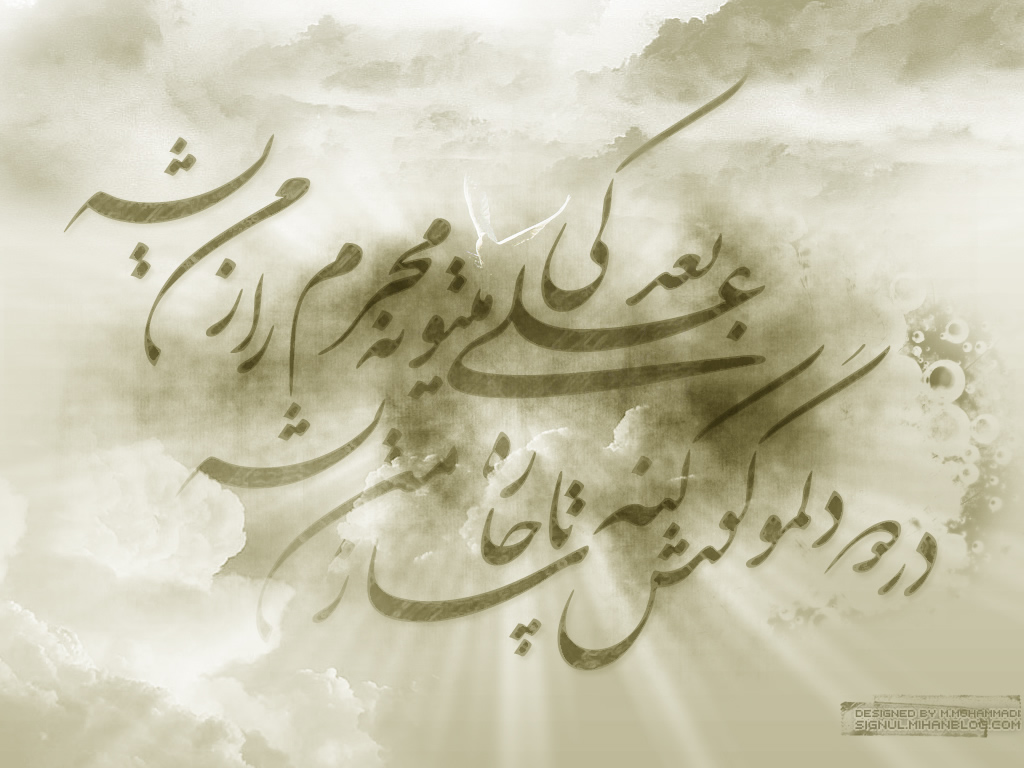 بعد علی کی میتونه محرم راز من بشه
درد تو دلمو گوش کنه تا چاره ساز من بشه
DESIGNED BY M.MOHAMMADI
SIGNUL.MIHANBLOG.COM